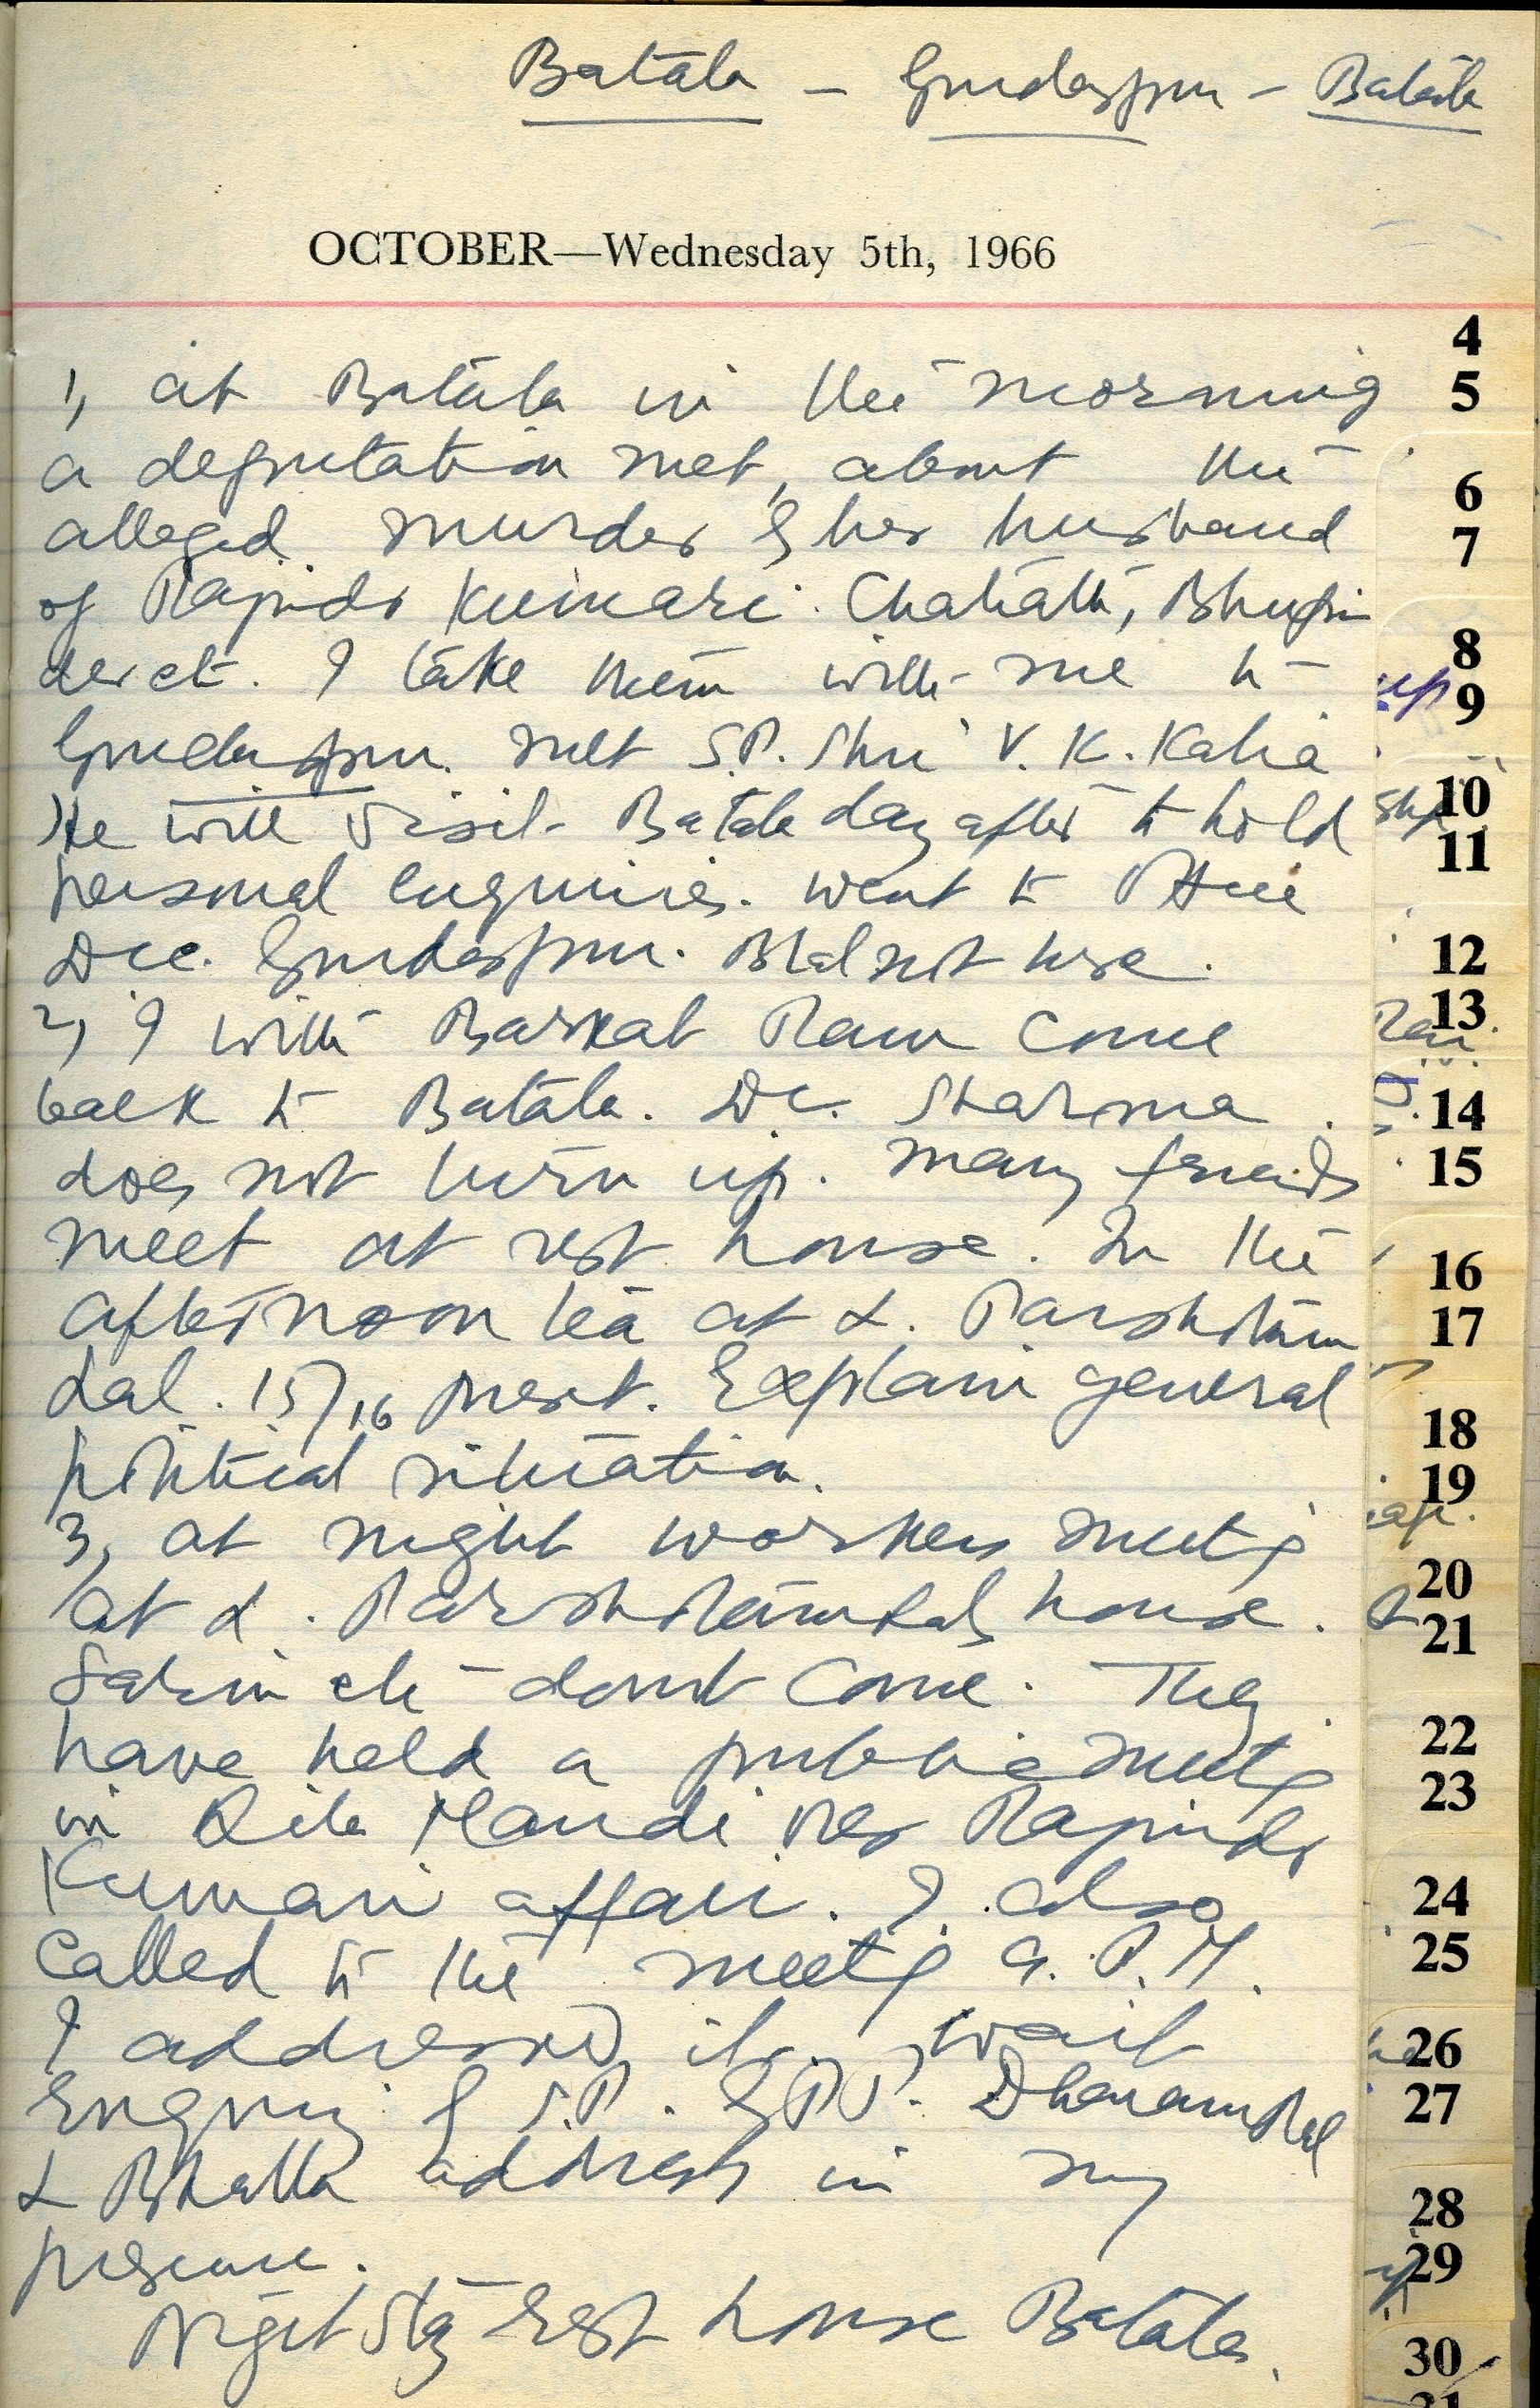 Batala - Gurdaspur - Batala
OCTOBER—Wednesday 5th, 1966
1, at Batala in the morning
a deputation met, about the
alleged murder by her husband
of Rajindr Kumari. Bhupin
der etc. I take them with me to
Gurdaspur. met S.P. Shri V. K. Kalia
He will visit Batala day after to hold
personal enquiries. went to
Dcc. Gurdaspur. not here.
2, I with Barkat Ram come
back to Batala. Dr. Sharma
does not turn up. many friends
meet at rest house. In the
afternoon tea at L. Parshotam
Lal. 15/16 present. Explain general
political situation.
3, at night workers meeting
at L. Parshotamlals house.
etc dont come. They
have held a public meeting
in Qila Mandi re Rajindr
Kumari affair. I also
called to the meeting 9. P.M.
I addressed it. wait
Enquiry of S.P. Dharampal
& Bhalla address in my
presence.
Night Stay rest house Batala.
4
5
6
7
8
9
10
11
12
13
14
15
16
17
18
19
20
21
22
23
24
25
26
27
28
29
30
31